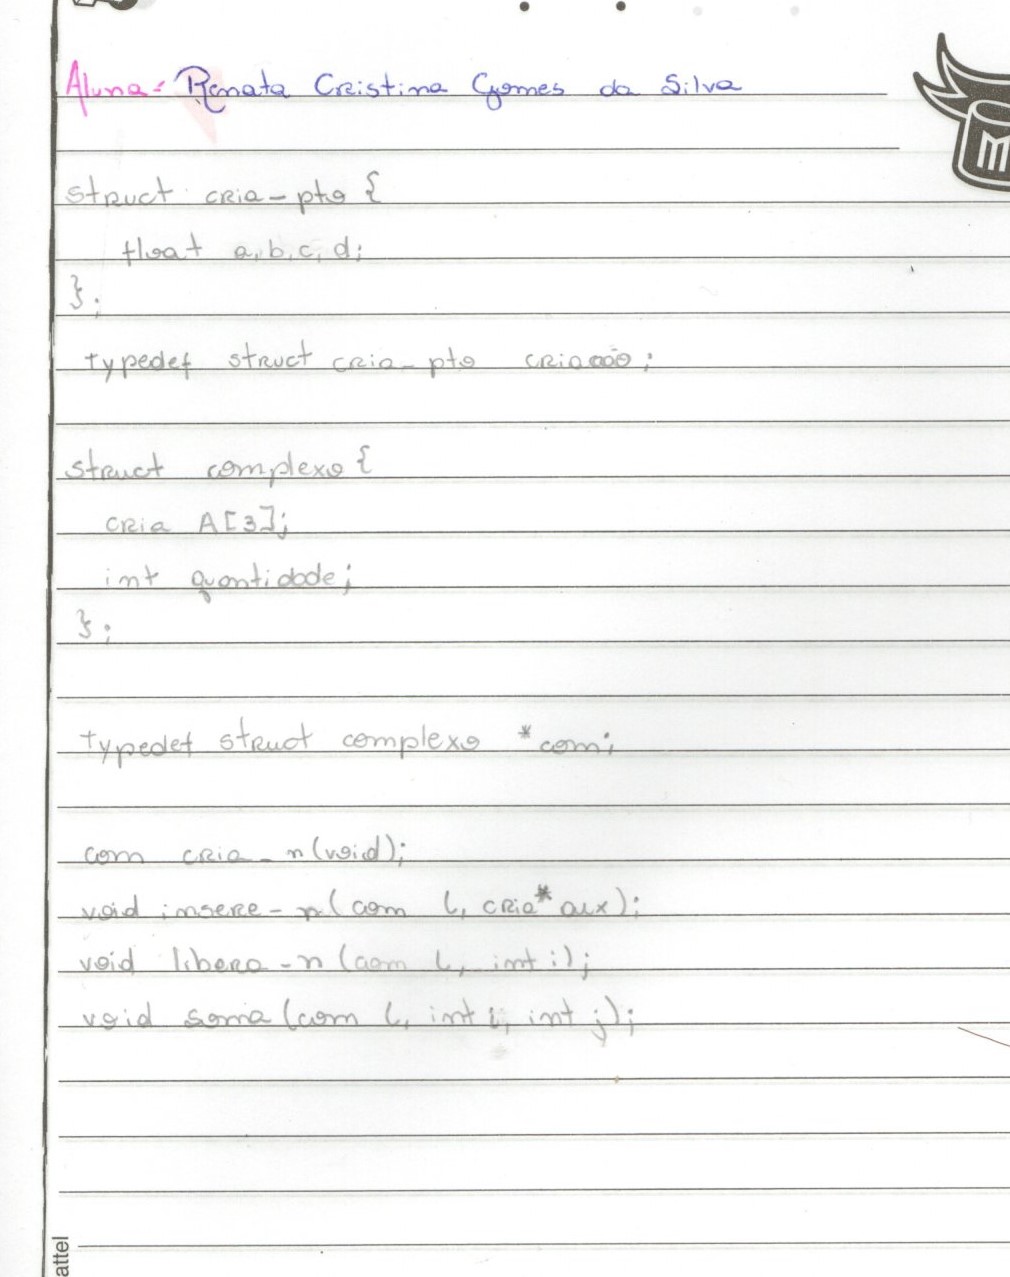 Aluna: Renata Cristina Gomes da Silva
struct cria_pto {
float a, b, c, d;
};
typedef struct cria_pto criacao;
struct complexo {
cria A[3];
int quantidade;
};
typedef struct complexo *com;
com cria_n(void);
void insere_n(com l, cria* aux);
void libera_n(com l, int i);
void soma(com l, int i, int j);
attel